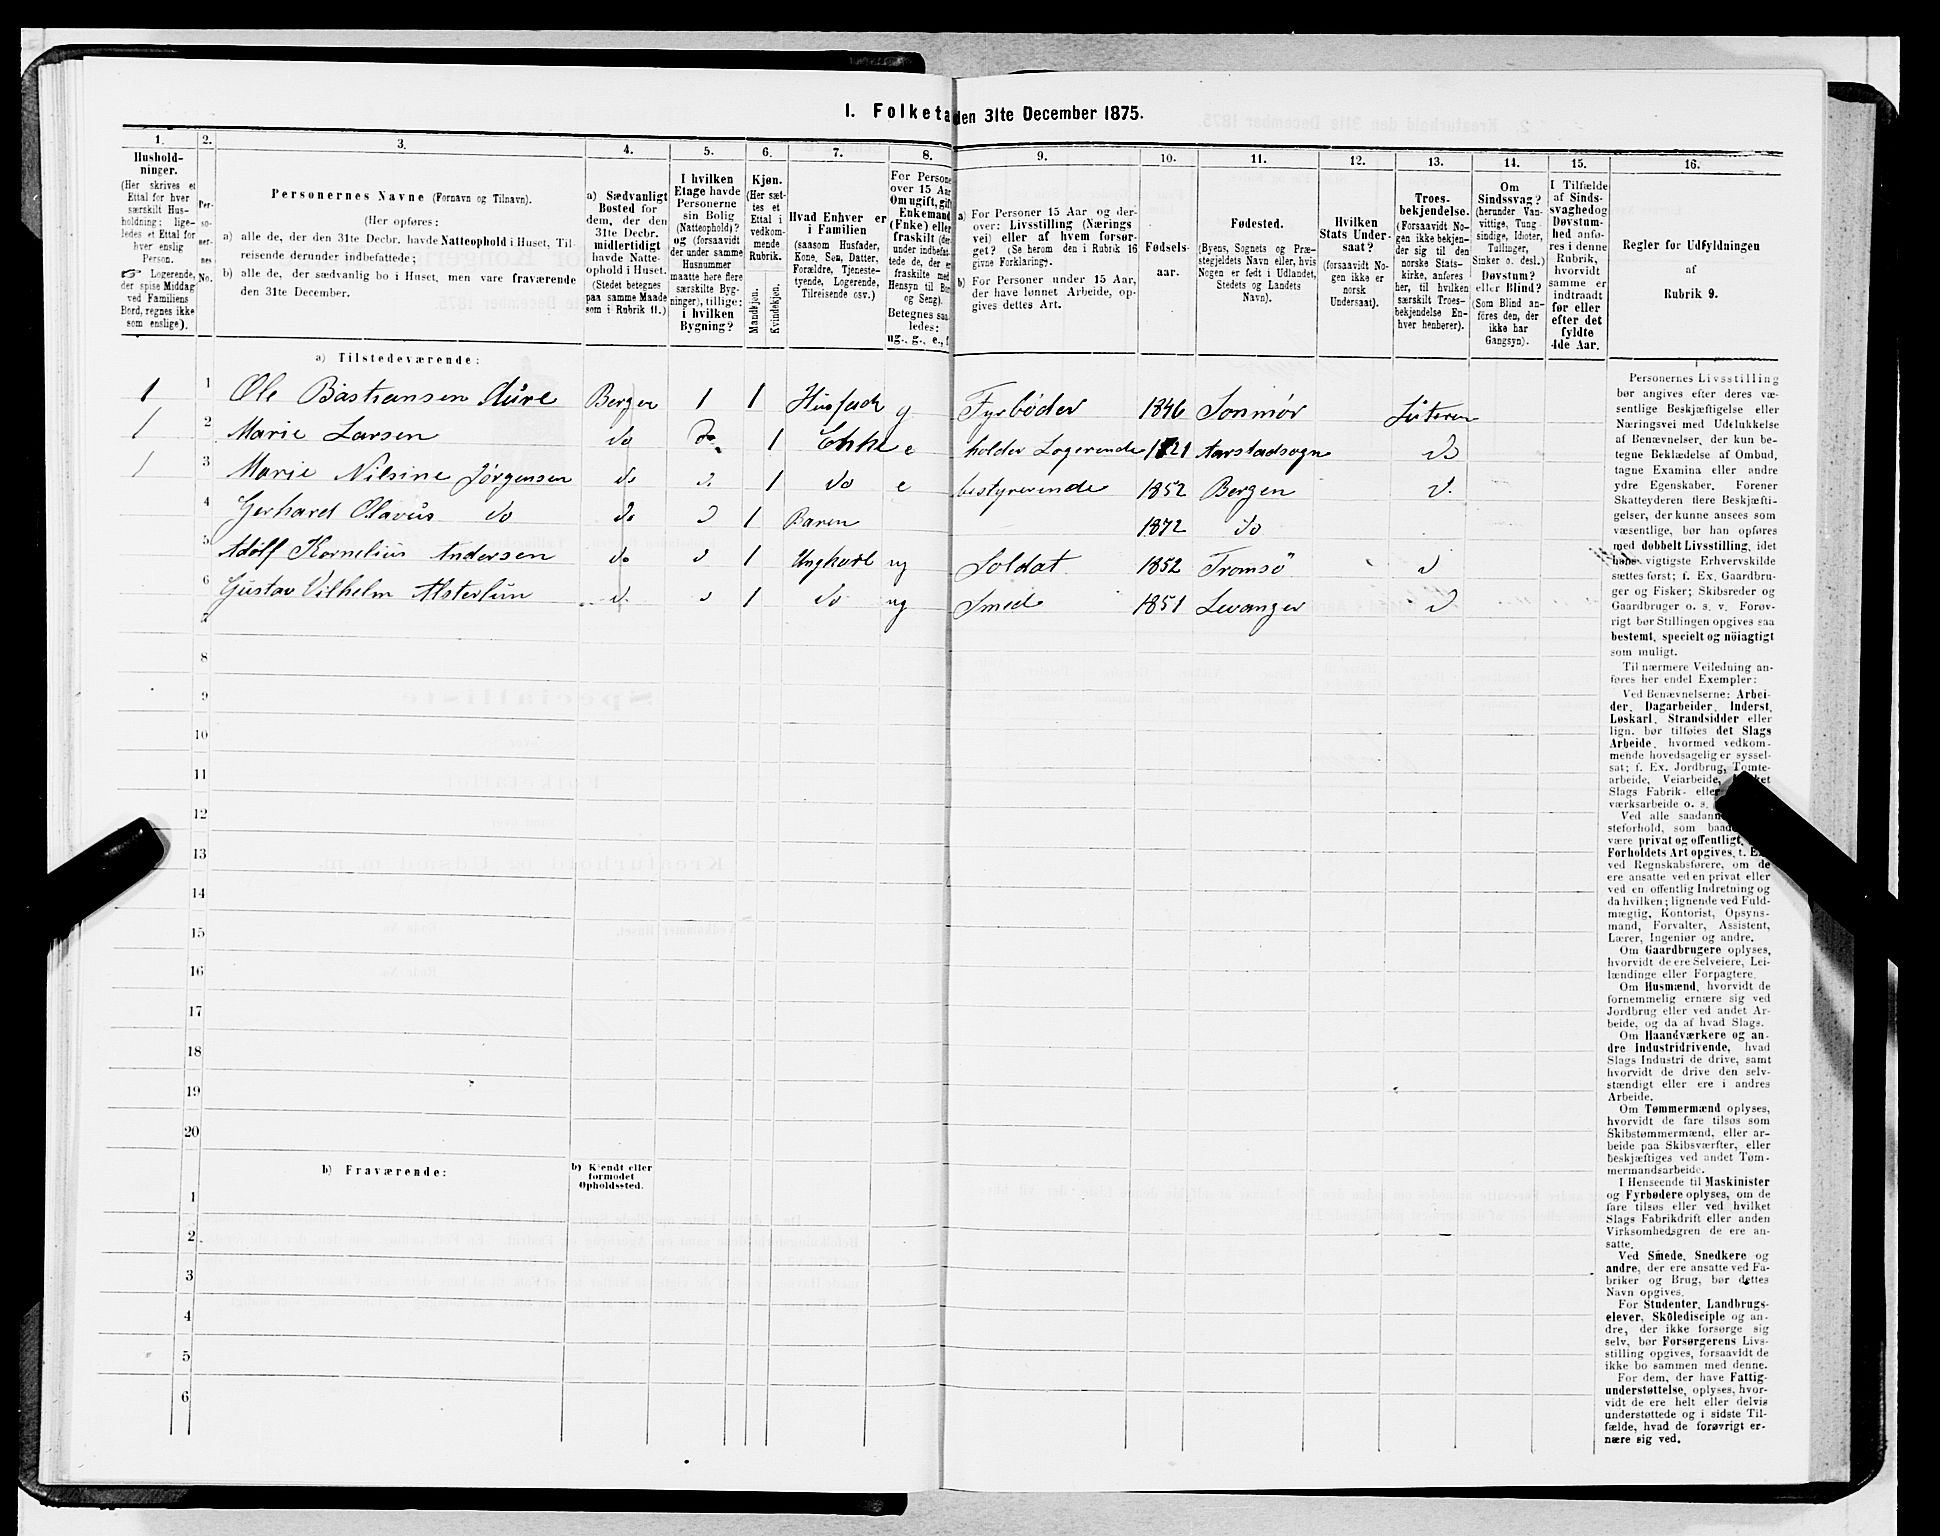 I. Folketa den 31te December 1875.
1. 2. 3. 4. 5. 6. 7. 8. 9. 10. 11. 12. 13. 14. 15. 16.
Hushold-
ninger.
(Her skrives et
Ettal for hver
særskilt Hus-
holdning; lige-
ledes et Ettal for
hver enslig
Person.
☞ Logerende,
der spise Middag
ved Familiens
Bord, regnes ikke
som enslige).
Per-
so-
ner-
nes
No.
Personernes Navne (Fornavn og Tilnavn).
(Her opføres:
a) alle de, der den 31te Decbr. havde Natteophold i Huset, Til-
reisende derunder indbefattede;
b) alle de, der sædvanlig bo i Huset, men vare fraværende
den 31te December.
a) Sædvanligt
Bosted for
dem, der den
31te Decbr.
midlertidigt
havde Natte-
ophold i Huset.
(Stedet betegnes
paa samme Maade
som i Rubrik 11.)
I hvilken
Etage havde
Personerne
sin Bolig
(Natteophold)?
og (forsaavidt
der under samme
Husnummer
maatte høre flere
særskilte Byg-
ninger), tillige:
i hvilken
Bygning?
Kjøn.
(Her sæt-
tes et
Ettal i
vedkom-
mende
Rubrik.
Mandkjøn.
Kvindekjøn.
Hvad Enhver er
i Familien
(saasom Husfader,
Kone, Søn, Datter,
Forældre, Tjeneste-
tyende, Logerende,
Tilreisende osv.)
For Persone
over 15 Aar
Om ugift, gift
Enkemand
(Enke) eller
fraskilt (der-
under indbefat-
tede de, der e
fraskilte med
Hensyn til Bor
og Seng).
Betegnes saa
ledes:
ug., g., e., f.
a) For Personer 15 Aar og der-
over: Livsstilling (Nærings
vei) eller af hvem forsør-
get? (Se herom den i Rubrik 16
givne Forklaring).
b) For Personer under 15 Aar,
der have lønnet Arbeide, op-
gives dettes Art.
Fødsels-
aar.
Fødested.
(Byens, Sognets og Præ-
stegjeldets Navn eller, hvis
Nogen er født i Udlandet,
Stedets og Landets
Navn).
Hvilken
Stats Under-
saat?
(forsaavidt No-
gen ikke er
norsk
Undersaat).
Troes-
bekjendelse.
(Forsaavidt No-
gen ikke bekjen-
der sig til den
norske Stats-
kirke, anføres
her, til hvilken
særskilt Troes-
bekjendelse En-
hver henhører).
Om
Sindssvag?
(herunder Van-
vittige, Tung-
sindige, Idioter,
Tullinger,
Sinker o. desl.)
Døvstum?
eller Blind?
(Som Blind an-
føres den, der
ikke har
Gangsyn).
I Tilfælde
af Sinds-
svaghed og
Døvstum-
hed anfø-
res i denne
Rubrik,
hvorvidt
samme er
indtraadt
før eller
efter det
fyldte
4de Aar.
Regler for Udfyldningen
af
Rubrik 9.
a) Tilstedeværende:
1 1 Ole Bastiansen Aure Bergen 1 1 Husfader g Fyrbøder 1846 Sønmør Luteran
1 2 Marie Larsen do do 1 Enke e holder Logerende 1821 Aarstadsogn D
1 3 Marie Nilsine Jørgensen do D 1 do e bestyrerende 1852 Bergen D.
4 Gerhard Olavus do do D 1 Baren 1872 do
5 Adolf Kornelius Andersen do D 1 Ungkarl ug Soldat 1852 Tromsö D
6 Gustav Vilhelm Alsterlun D. D 1 do ug Smed 1851 Levanger D
7
8
9
10
11
12
13
14
15
16
17
18
19
20
b) Fraværende:
b) Kjendt eller
formodet
Opholdssted.
1
2
3
4
5
6
Personernes Livsstilling
bør angives efter deres væ-
sentlige Beskjæftigelse eller
Næringsvei med Udelukkelse
af Benævnelser, der kun be-
tegne Beklædelse af Ombud,
tagne Examina eller andre
ydre Egenskaber. Forener
Skatteyderen flere Beskjæfti-
gelser, der kunne ansees som
væsentlige, bør han opføres
med dobbelt Livsstilling, idet
hans vigtigste Erhvervskilde
sættes først; f. Ex. Gaardbru-
ger og Fisker; Skibsreder og
Gaardbruger o. s. v. Forøv-
rigt bør Stillingen opgives saa
bestemt, specielt og nöiagtigt
som muligt.
Til nærmere Veiledning an-
føres her endel Exempler:
Ved Benævnelserne: Arbei-
der, Dagarbeider, Inderst,
Løskarl, Strandsidder eller
lign. bør tilføies det Slags
Arbeide, hvormed vedkom-
mende hovedsagelig er syssel-
sat; f. Ex. Jordbrug, Tomte-
arbeide, Veiarbeide,
Slags Fabrik- eller
værksarbeide o. s.
Ved alle saadan
steforhold, som
være privat og offentligt,
Forholdets Art opgives, t. Ex.
ved Regnskabsførere, om de
ere ansatte ved en privat eller
ved en offentlig Indretning og
da hvilken; lignende ved Fuld-
mægtig, Kontorist, Opsyns-
mand, Forvalter, Assistent,
Lærer, Ingeniør og andre.
Om Gaardbrugere oplyses,
hvorvidt de ere Selveiere, Lei-
lændinge eller Forpagtere.
Om Husmænd, hvorvidt de
fornemmelig ernære sig ved
Jordbrug eller ved andet Ar-
beide, og da af hvad Slags.
Om Haandværkere og an-
dre Industridrivende, hvad
Slags Industri de drive, samt
hvorvidt de drive den selv-
stændigt eller ere i andres
Arbeide.
Om Tømmermænd oplyses,
hvorvidt de fare tilsøs som
Skibstømmermænd, eller ar-
beide paa Skibsværfter, eller
beskjæftiges ved andet Tøm-
mermandsarbeide.
I Henseende til Maskinister
og Fyrbødere oplyses, om de
fare tilsøs eller ved hvilket
Slags Fabrikdrift eller anden
Virksomhedsgren de ere an-
satte.
Ved Smede, Snedkere og
andre, der ere ansatte ved Fa-
briker og Brug, bør dettes
Navn opgives.
For Studenter, Landbrugs-
elever, Skoledisciple og an-
dre, der ikke forsørge sig
selv, bør Forsørgerens Livs-
stilling opgives, forsaavidt de
ikke bo sammen med denne.
For dem, der have Fattig-
understøttelse, oplyses, hvor-
vidt de ere helt eller delvis
understøttede og i sidste Til-
fælde, hvad de forøvrigt er-
nære sig ved.